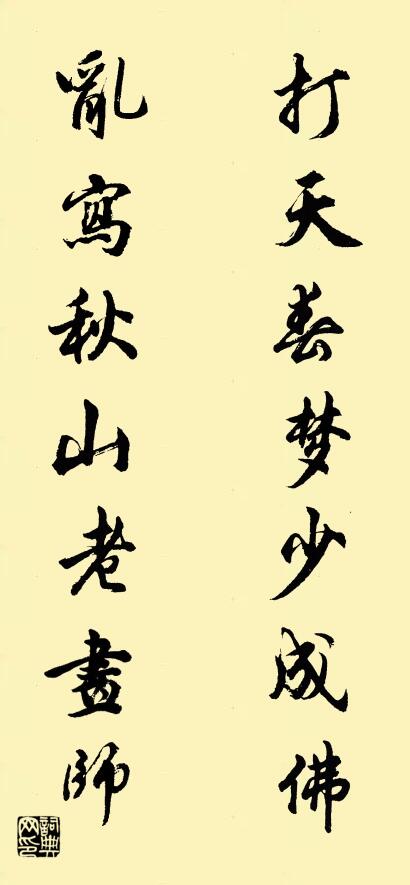 打天春梦少成佛
亂寫秋山老畫師
詞典网印